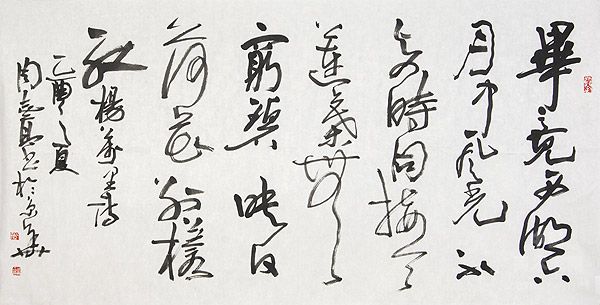 畢竟西湖六
月中風光不
与四時同接天
蓮葉無
窮碧映日
荷花別樣
紅 楊萬里詩
乙酉之夏
周志高書於京華